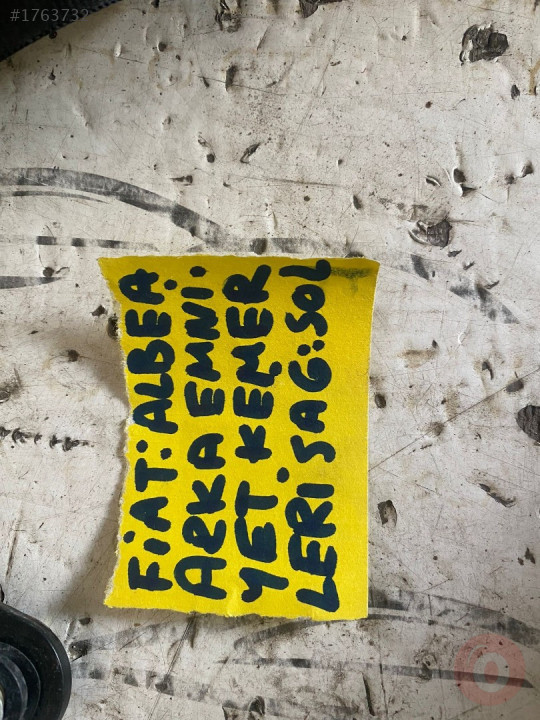 #1763732
FİAT: ALBEA
ARKA EMNİ.
YET. KEMER
LERİ SAG: SOL